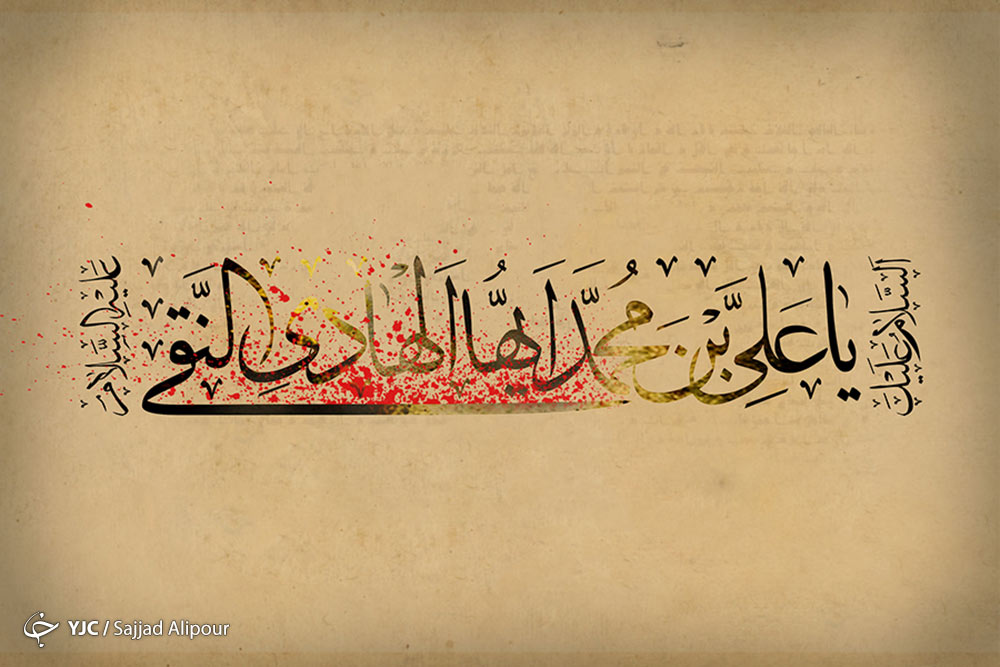 السَّلامُ عَلَيكَ
يا عَلِيَّ بْنَ مُحَمَّدٍ اَيُّهَا اَلْهادِي النَّقِي
عَلَيهِ السَّلامُ
YJC / Sajjad Alipour